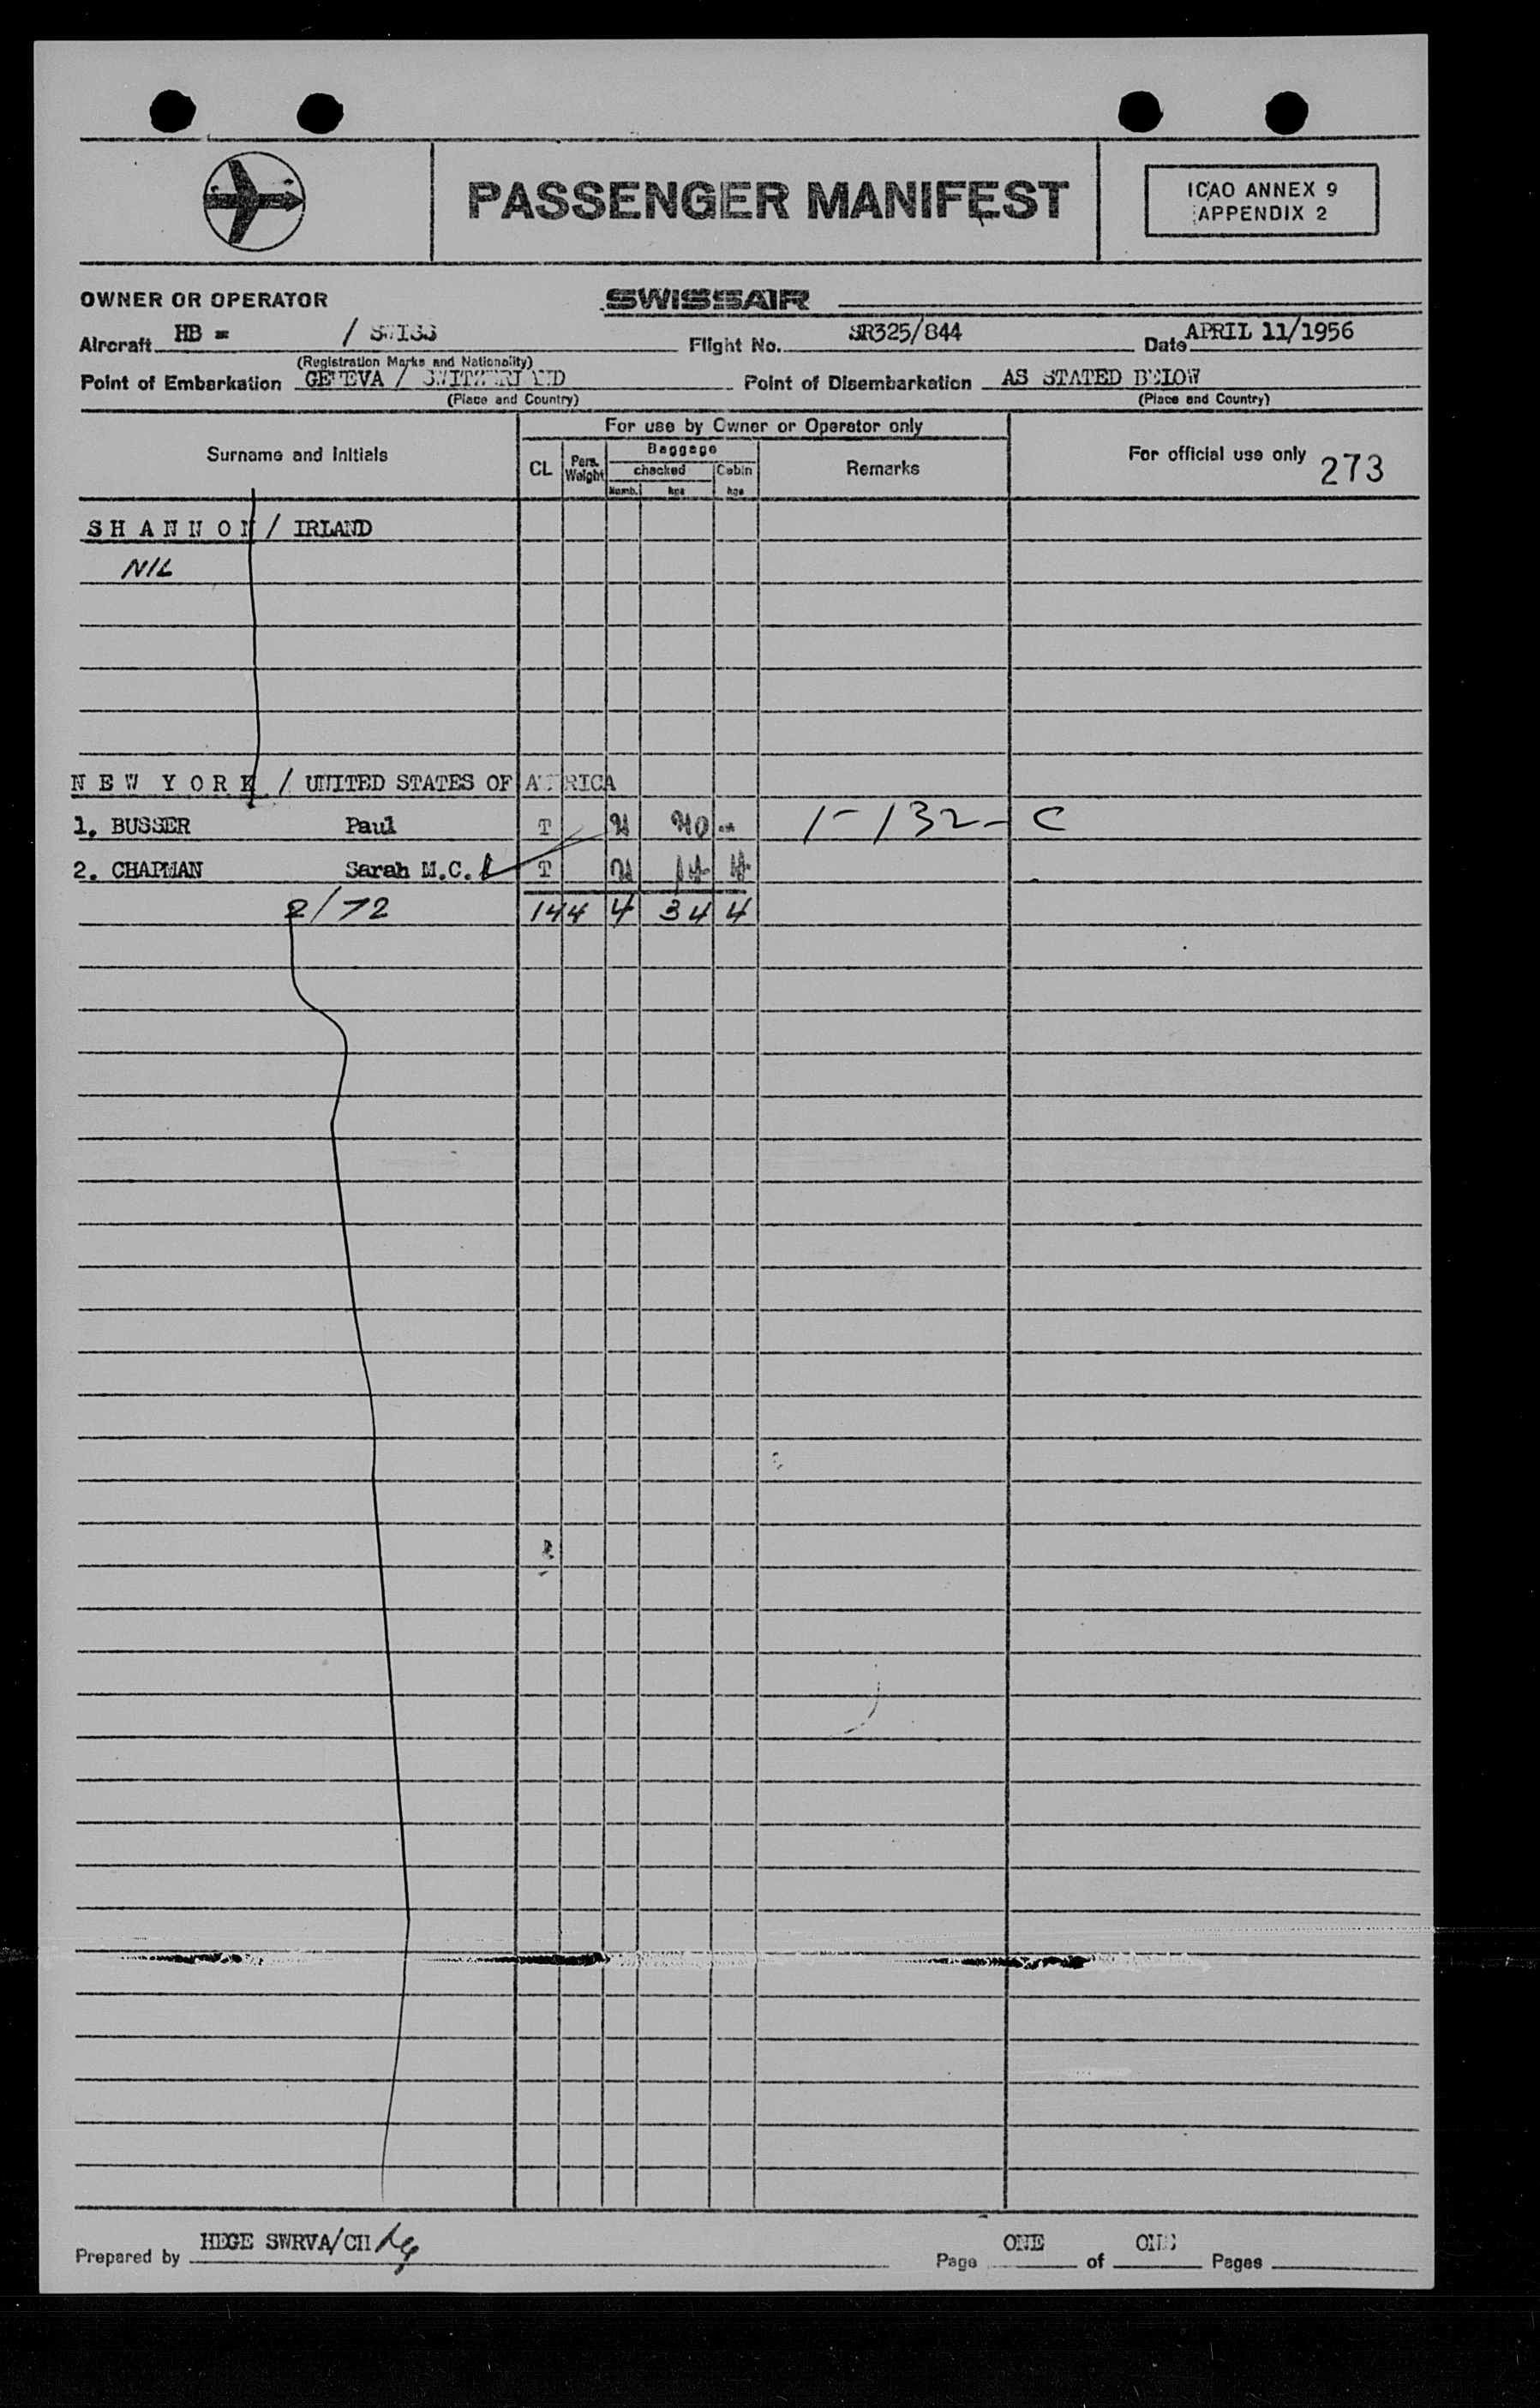 PASSENGER MANIFEST
ICAO ANNEX 9
APPENDIX 2
OWNER OR OPERATOR SWISSAIR
Aircraft HB = / SWISS Flight No. SR325/844 Date APRIL 11/1956
(Registration Marks and Nationality)
Point of Embarkation GENEVA / SWITZERLAND Point of Disembarkation AS STATED BELOW
(Place and Country) (Place and Country)
For use by Owner or Operator only
Surname and Initials CL Pers. Weight Baggage checked Numb. kgs Cabin kgs Remarks For official use only 273
S H A N N O N / IRLAND
NIL
N E W Y O R K / UNITED STATES OF AMERICA
1. BUSSER Paul T 2 20 - 1-132-C
2. CHAPMAN Sarah M.C. T 2 14 4
2/72 144 4 34 4
Prepared by HEGE SWRVA/CH Page ONE of ONE Pages